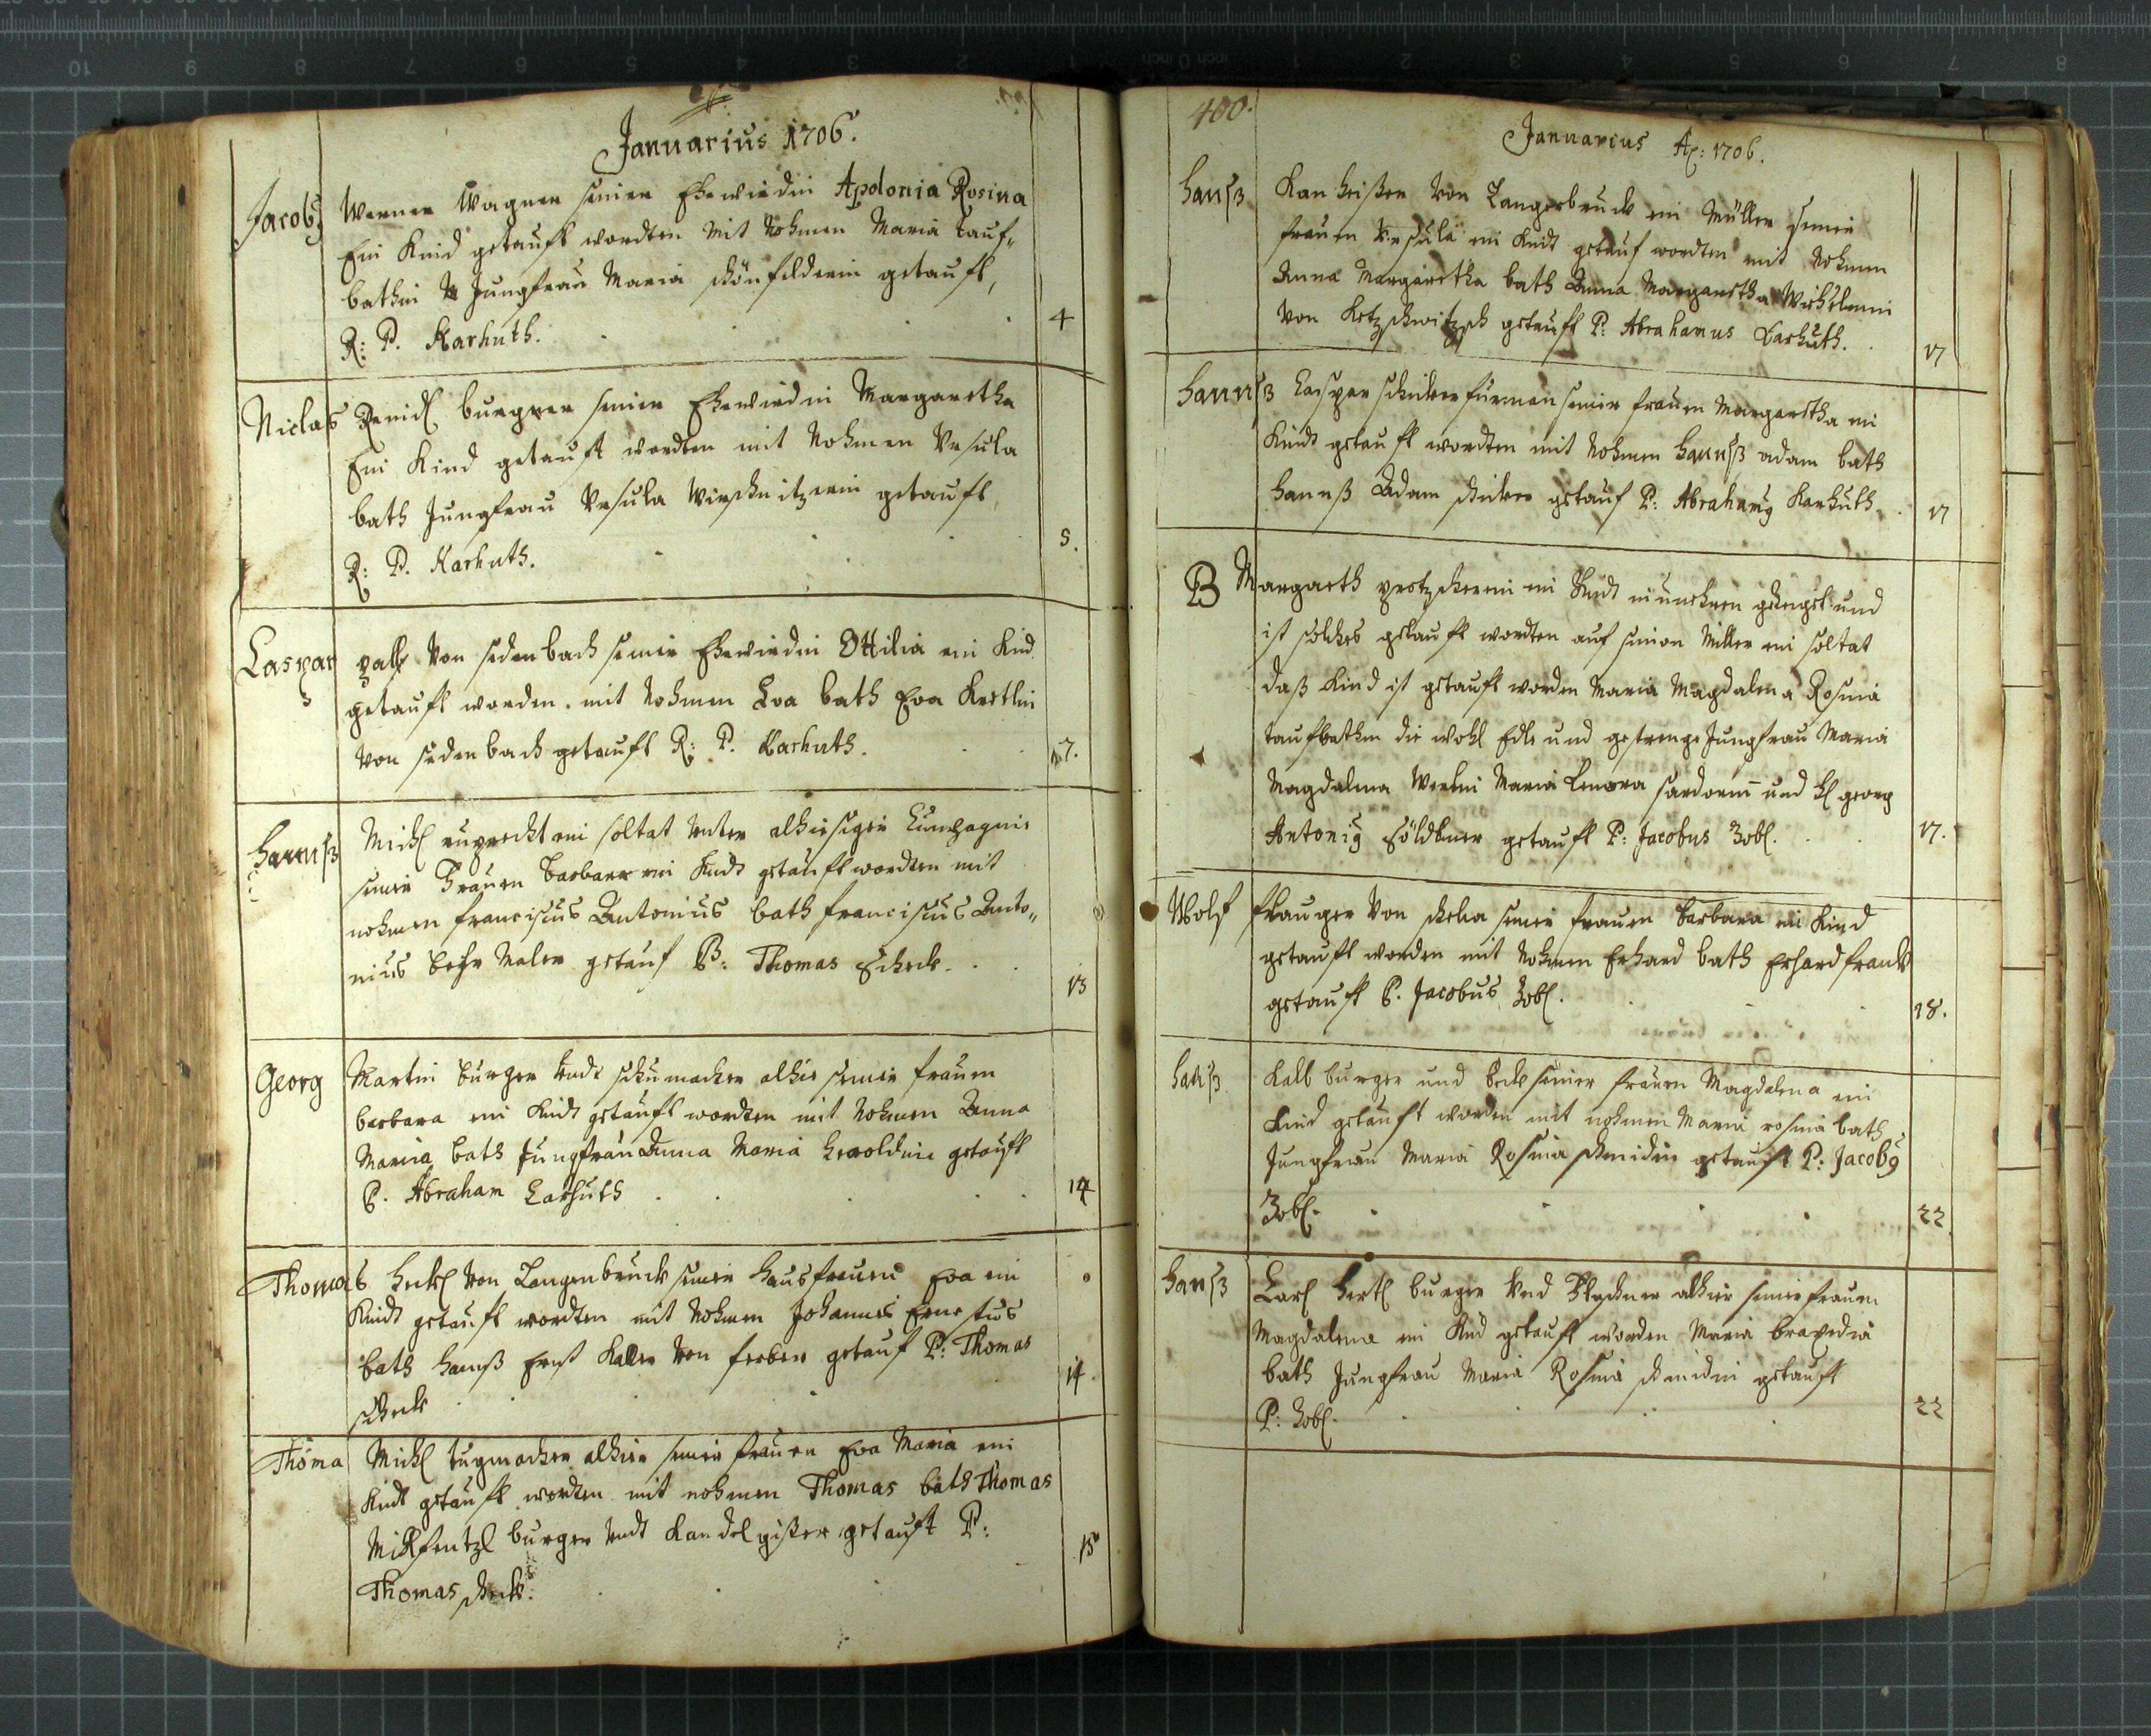 Januarius 1706.
Jacob9 Werner Wagner seiner Ehewirdin Apolonia Rosina
Ein Kind getaufft wordten Mit Nohmen Maria tauf-
bathin Jungfrau Maria schönfelderin getaufft,
R: P. Karhuth. 4
Niclas burger seiner Ehewirdin Margaretha
Ein Kind getaufft wordten mit Nohmen Vrsula
bath Jungfrau Vrsula getaufft
R: P. Karhuth. 5.
Caspar Von sedenbach seiner Ehewirdin Ottilia ein Kind
getaufft worden mit Nohmen Eva bath Eva
Von sedenbach getaufft R: P. Karhuth. 7.
Hannß Michl ruprecht ein soltat Unter alhiesiger Cumpagnie
seiner Frauen Barbara ein Kindt getaufft wordten mit
nohmen franciscus Antonius bath franciscus Anto-
nius Maler getauf P: Thomas Scheck. 13
Georg Martin burger Undt schumacher alhie seiner frauen
barbara ein Kindt getaufft wordten mit Nohmen Anna
Maria bath Jungfrau Anna Maria getaufft
P. Abraham Carhuth 14
Thomas Heckl Von Langenbruck seiner Hausfrauen Eva ein
Kindt getaufft wordten mit Nohmen Johannes Ernestus
bath Hannß Ernst Von getauf P: Thomas
scheck 14.
Thoma Michl tugmacher alhier seiner frauen Eva Maria ein
Kindt getaufft wordten mit nohmen Thomas bath Thomas
burger Undt Kandelgißer getaufft P:
Thomas scheck. 15
400.
Januarius Ao: 1706.
Hanß Von Langerbruck ein Müller seiner
frauen Ursula ein Kindt getauf wordten mit Nohmen
Anna Margaretha bath Anna Margaretha
Von getaufft P: Abrahamus Carhuth. 17
Hannß Caspar fürman seiner frauen Margaretha ein
Kindt getaufft wordten mit Nohmen Hannß adam bath
Hannß Adam getauf P: Abraham9 Karhuth. 17
B Margareth ein Kindt und
ist solches getaufft wordten auf simon Miller ein soltat
daß Kind ist getaufft worden Maria Magdalena Rosina
taufbathin die wohl Edle und gestrenge Jungfrau Maria
Magdalena Maria und georg
Antoni9 getaufft P: Jacobus Zobl. 17.
Wolf Von seiner frauen Barbara ein Kind
getaufft worden mit Nohmen Erhard bath Erhard franck
getaufft P. Jacobus Zobl. 18.
Hanß Kalb burger und beck seiner frauen Magdalena ein
Kind getaufft worden mit nohmen Maria rosina bath
Jungfrau Maria Rosina schmidin getaufft P: Jacob9
Zobl. 22
Hanß Carl Hertl burger Und alhier seiner frauen
Magdalena ein Kind getaufft worden Maria braxedia
bath Jungfrau Maria Rosina schmidin getaufft
P: Zobl. 22